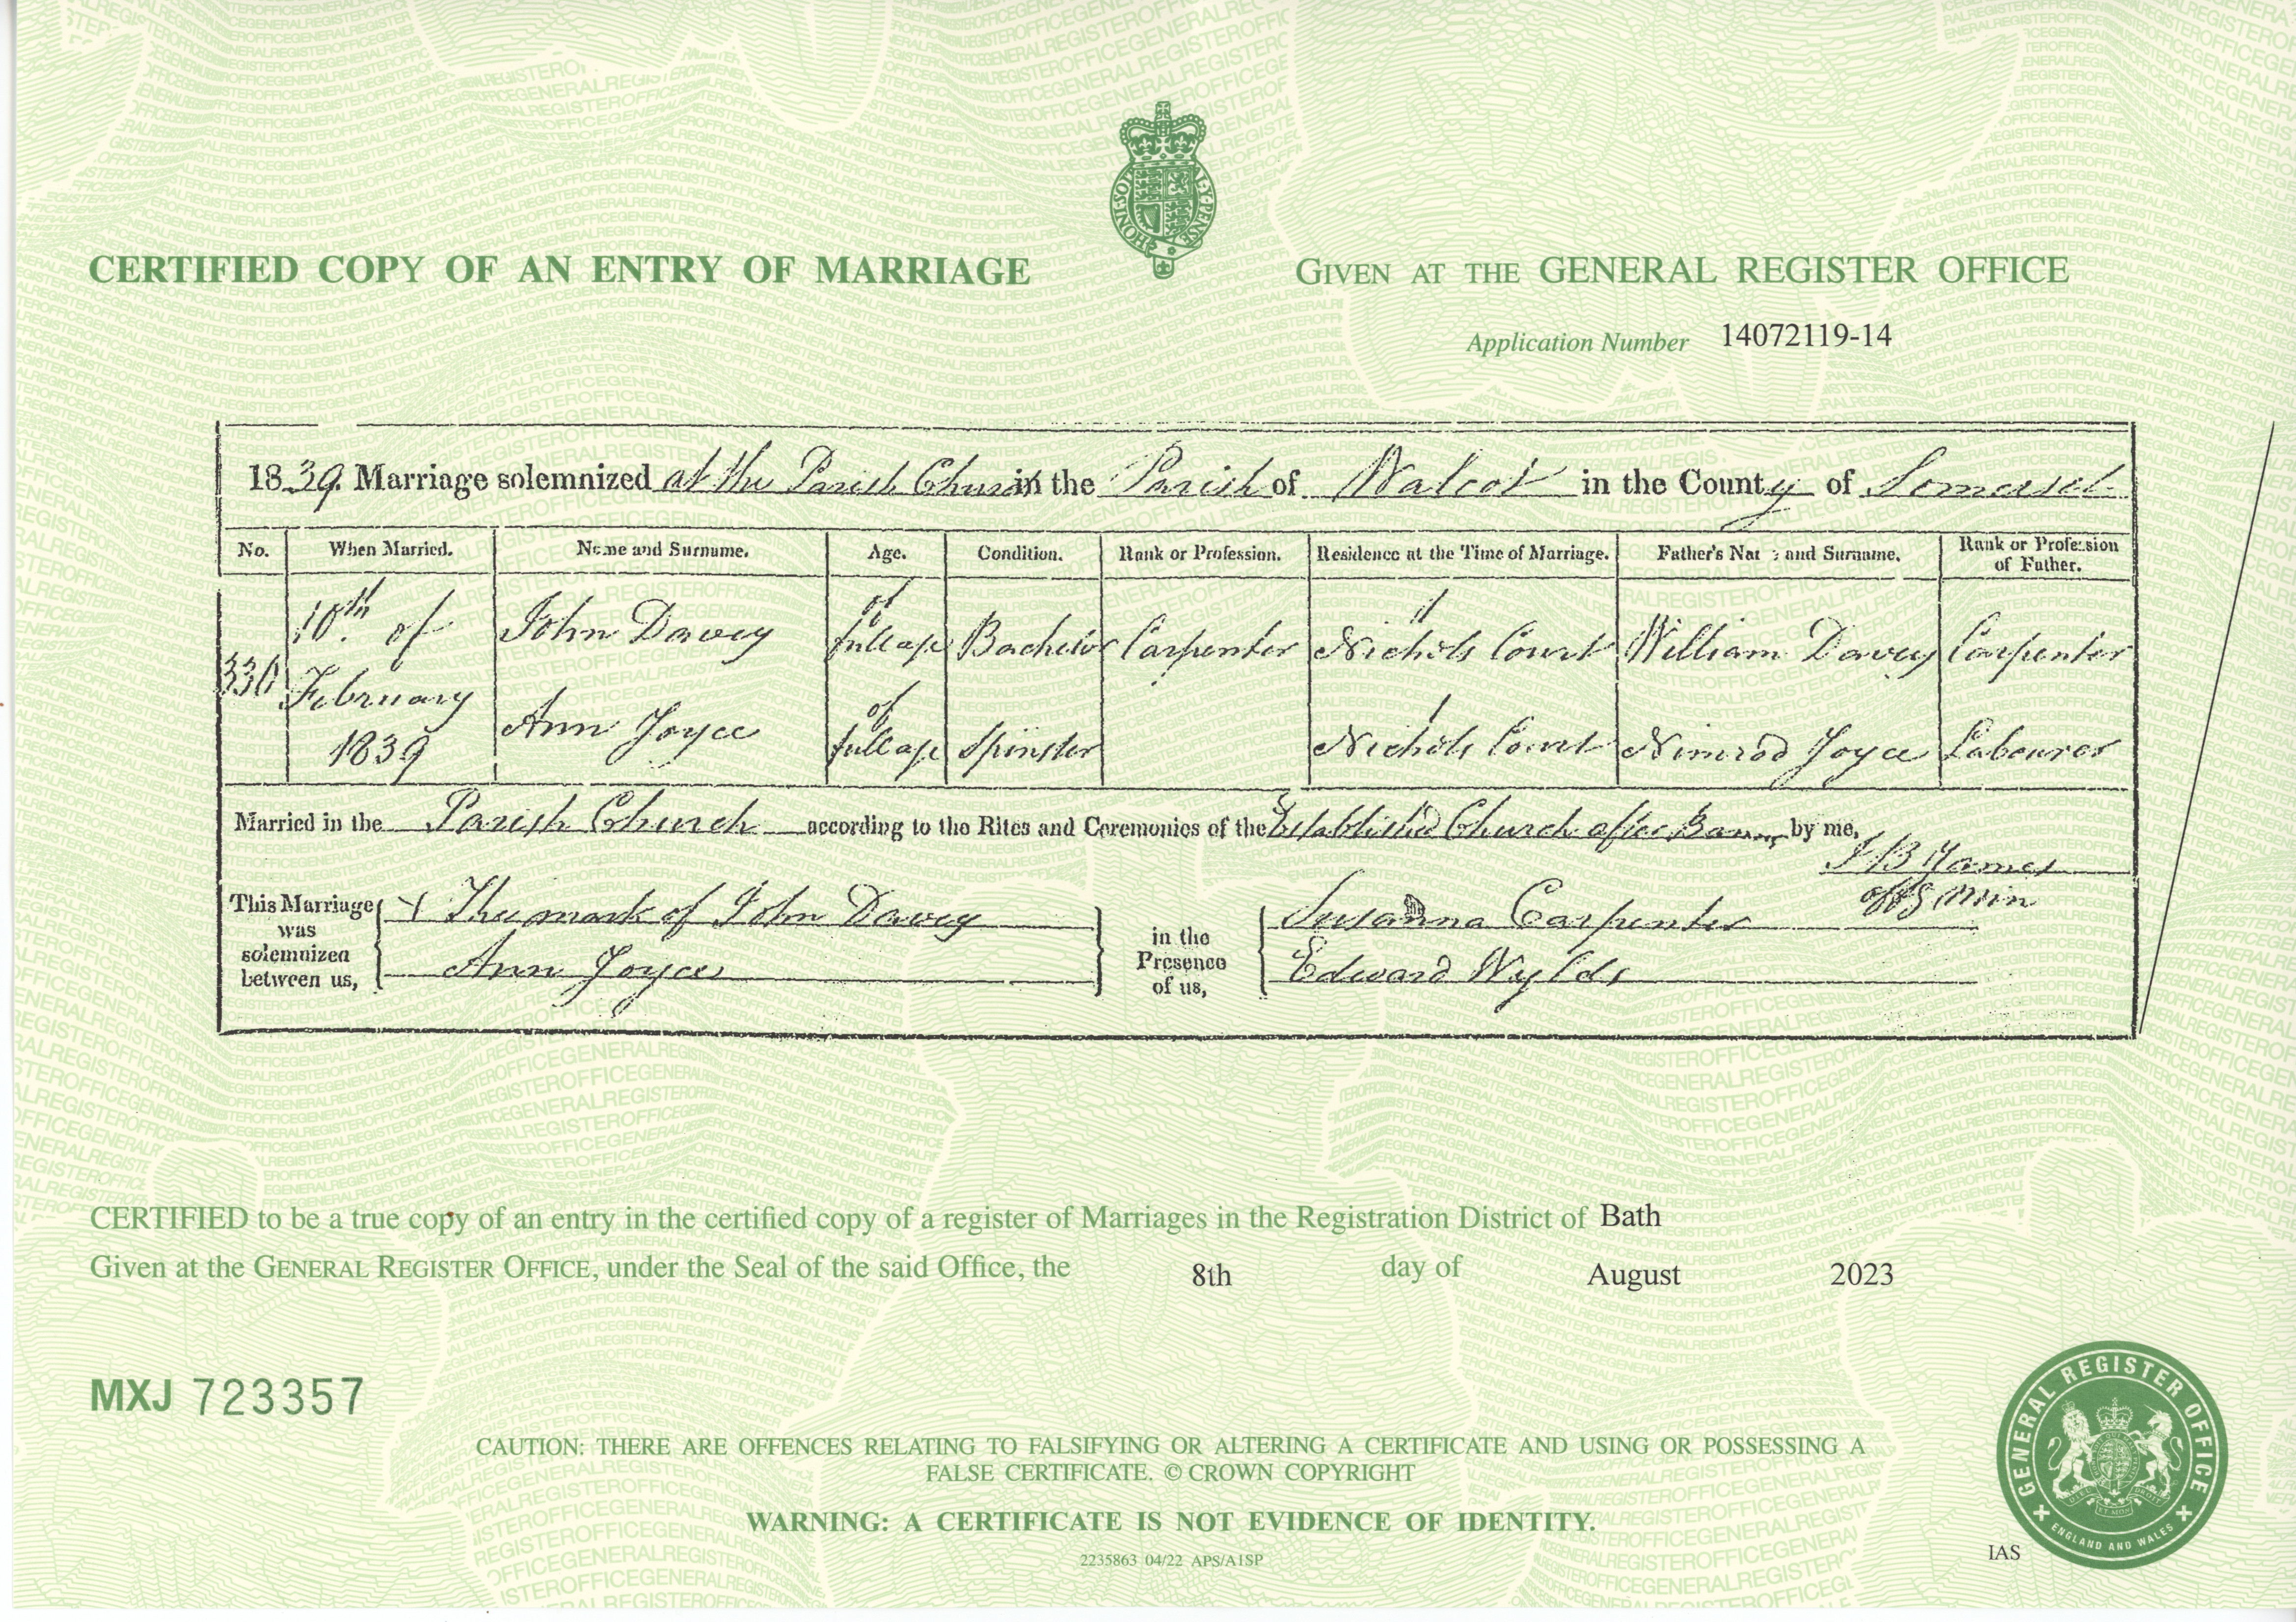 CERTIFIED COPY OF AN ENTRY OF MARRIAGE
GIVEN AT THE GENERAL REGISTER OFFICE
Application Number 14072119-14
1839. Marriage solemnized at the Parish Church in the Parish of Walcot in the County of Somerset
No. When Married. Name and Surname. Age. Condition. Rank or Profession. Residence at the Time of Marriage. Father's Name and Surname. Rank or Profession of Father.
330 10th of February 1839
John Davey of full age Bachelor Carpenter Nichols Court William Davey Carpenter
Ann Joyce of full age Spinster 1 Nichols Court Nimrod Joyce Labourer
Married in the Parish Church according to the Rites and Ceremonies of the Established Church after Banns by me,
J B James
offg Min
This Marriage was solemnized between us,
X The mark of John Davey
Ann Joyce
in the Presence of us,
Susanna Carpenter
Edward Wylds
CERTIFIED to be a true copy of an entry in the certified copy of a register of Marriages in the Registration District of Bath
Given at the GENERAL REGISTER OFFICE, under the Seal of the said Office, the 8th day of August 2023
MXJ 723357
CAUTION: THERE ARE OFFENCES RELATING TO FALSIFYING OR ALTERING A CERTIFICATE AND USING OR POSSESSING A
FALSE CERTIFICATE. © CROWN COPYRIGHT
WARNING: A CERTIFICATE IS NOT EVIDENCE OF IDENTITY.
2235863 04/22 APS/A1SP
IAS
GENERAL REGISTER OFFICE
ENGLAND AND WALES